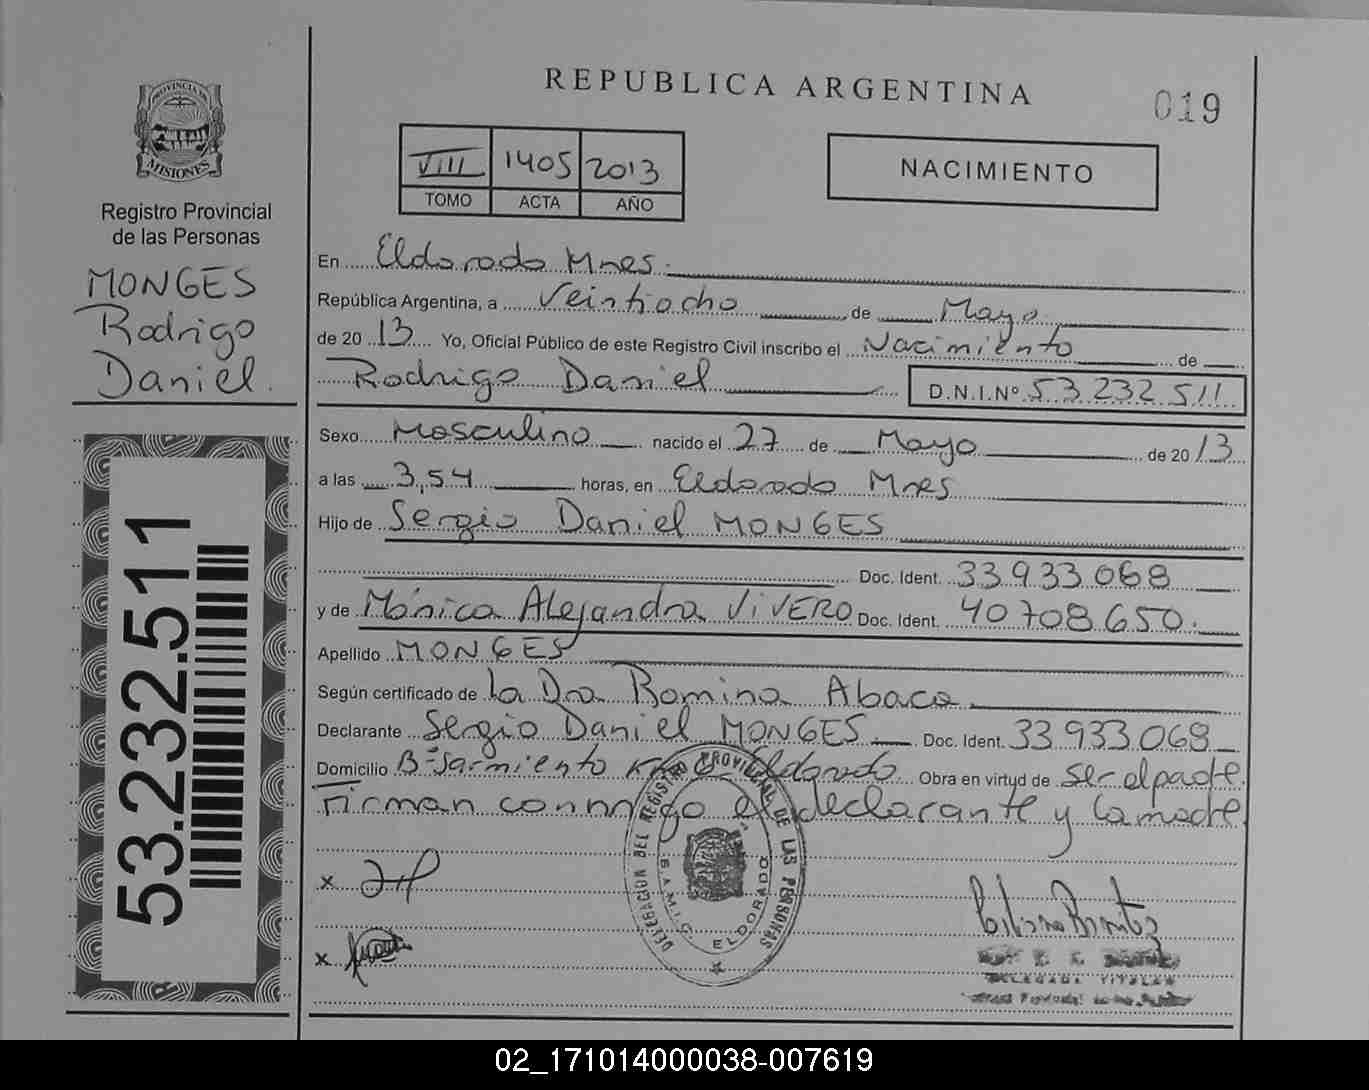 REPUBLICA ARGENTINA
019
PROVINCIA DE
MISIONES
Registro Provincial
de las Personas
MONGES
Rodrigo
Daniel
53.232.511
VIII 1405 2013
TOMO ACTA AÑO
NACIMIENTO
En Eldorado Mnes.
República Argentina, a Veintiocho de Mayo
de 20 13 Yo, Oficial Público de este Registro Civil inscribo el Nacimiento de
Rodrigo Daniel D.N.I.Nº 53.232.511
Sexo Masculino nacido el 27 de Mayo de 20 13
a las 3,54 horas, en Eldorado Mnes
Hijo de Sergio Daniel MONGES
Doc. Ident. 33.933.068
y de Mónica Alejandra VIVERO Doc. Ident. 40.708.650.
Apellido MONGES
Según certificado de la Dra Romina Abaca
Declarante Sergio Daniel MONGES Doc. Ident. 33.933.068
Domicilio Bº Sarmiento Eldorado Obra en virtud de ser el padre.
Firman conmigo el declarante y la madre.
DELEGACION DEL REGISTRO PROVINCIAL DE LAS PERSONAS
ELDORADO
x
x
DELEGADA TITULAR
02_171014000038-007619